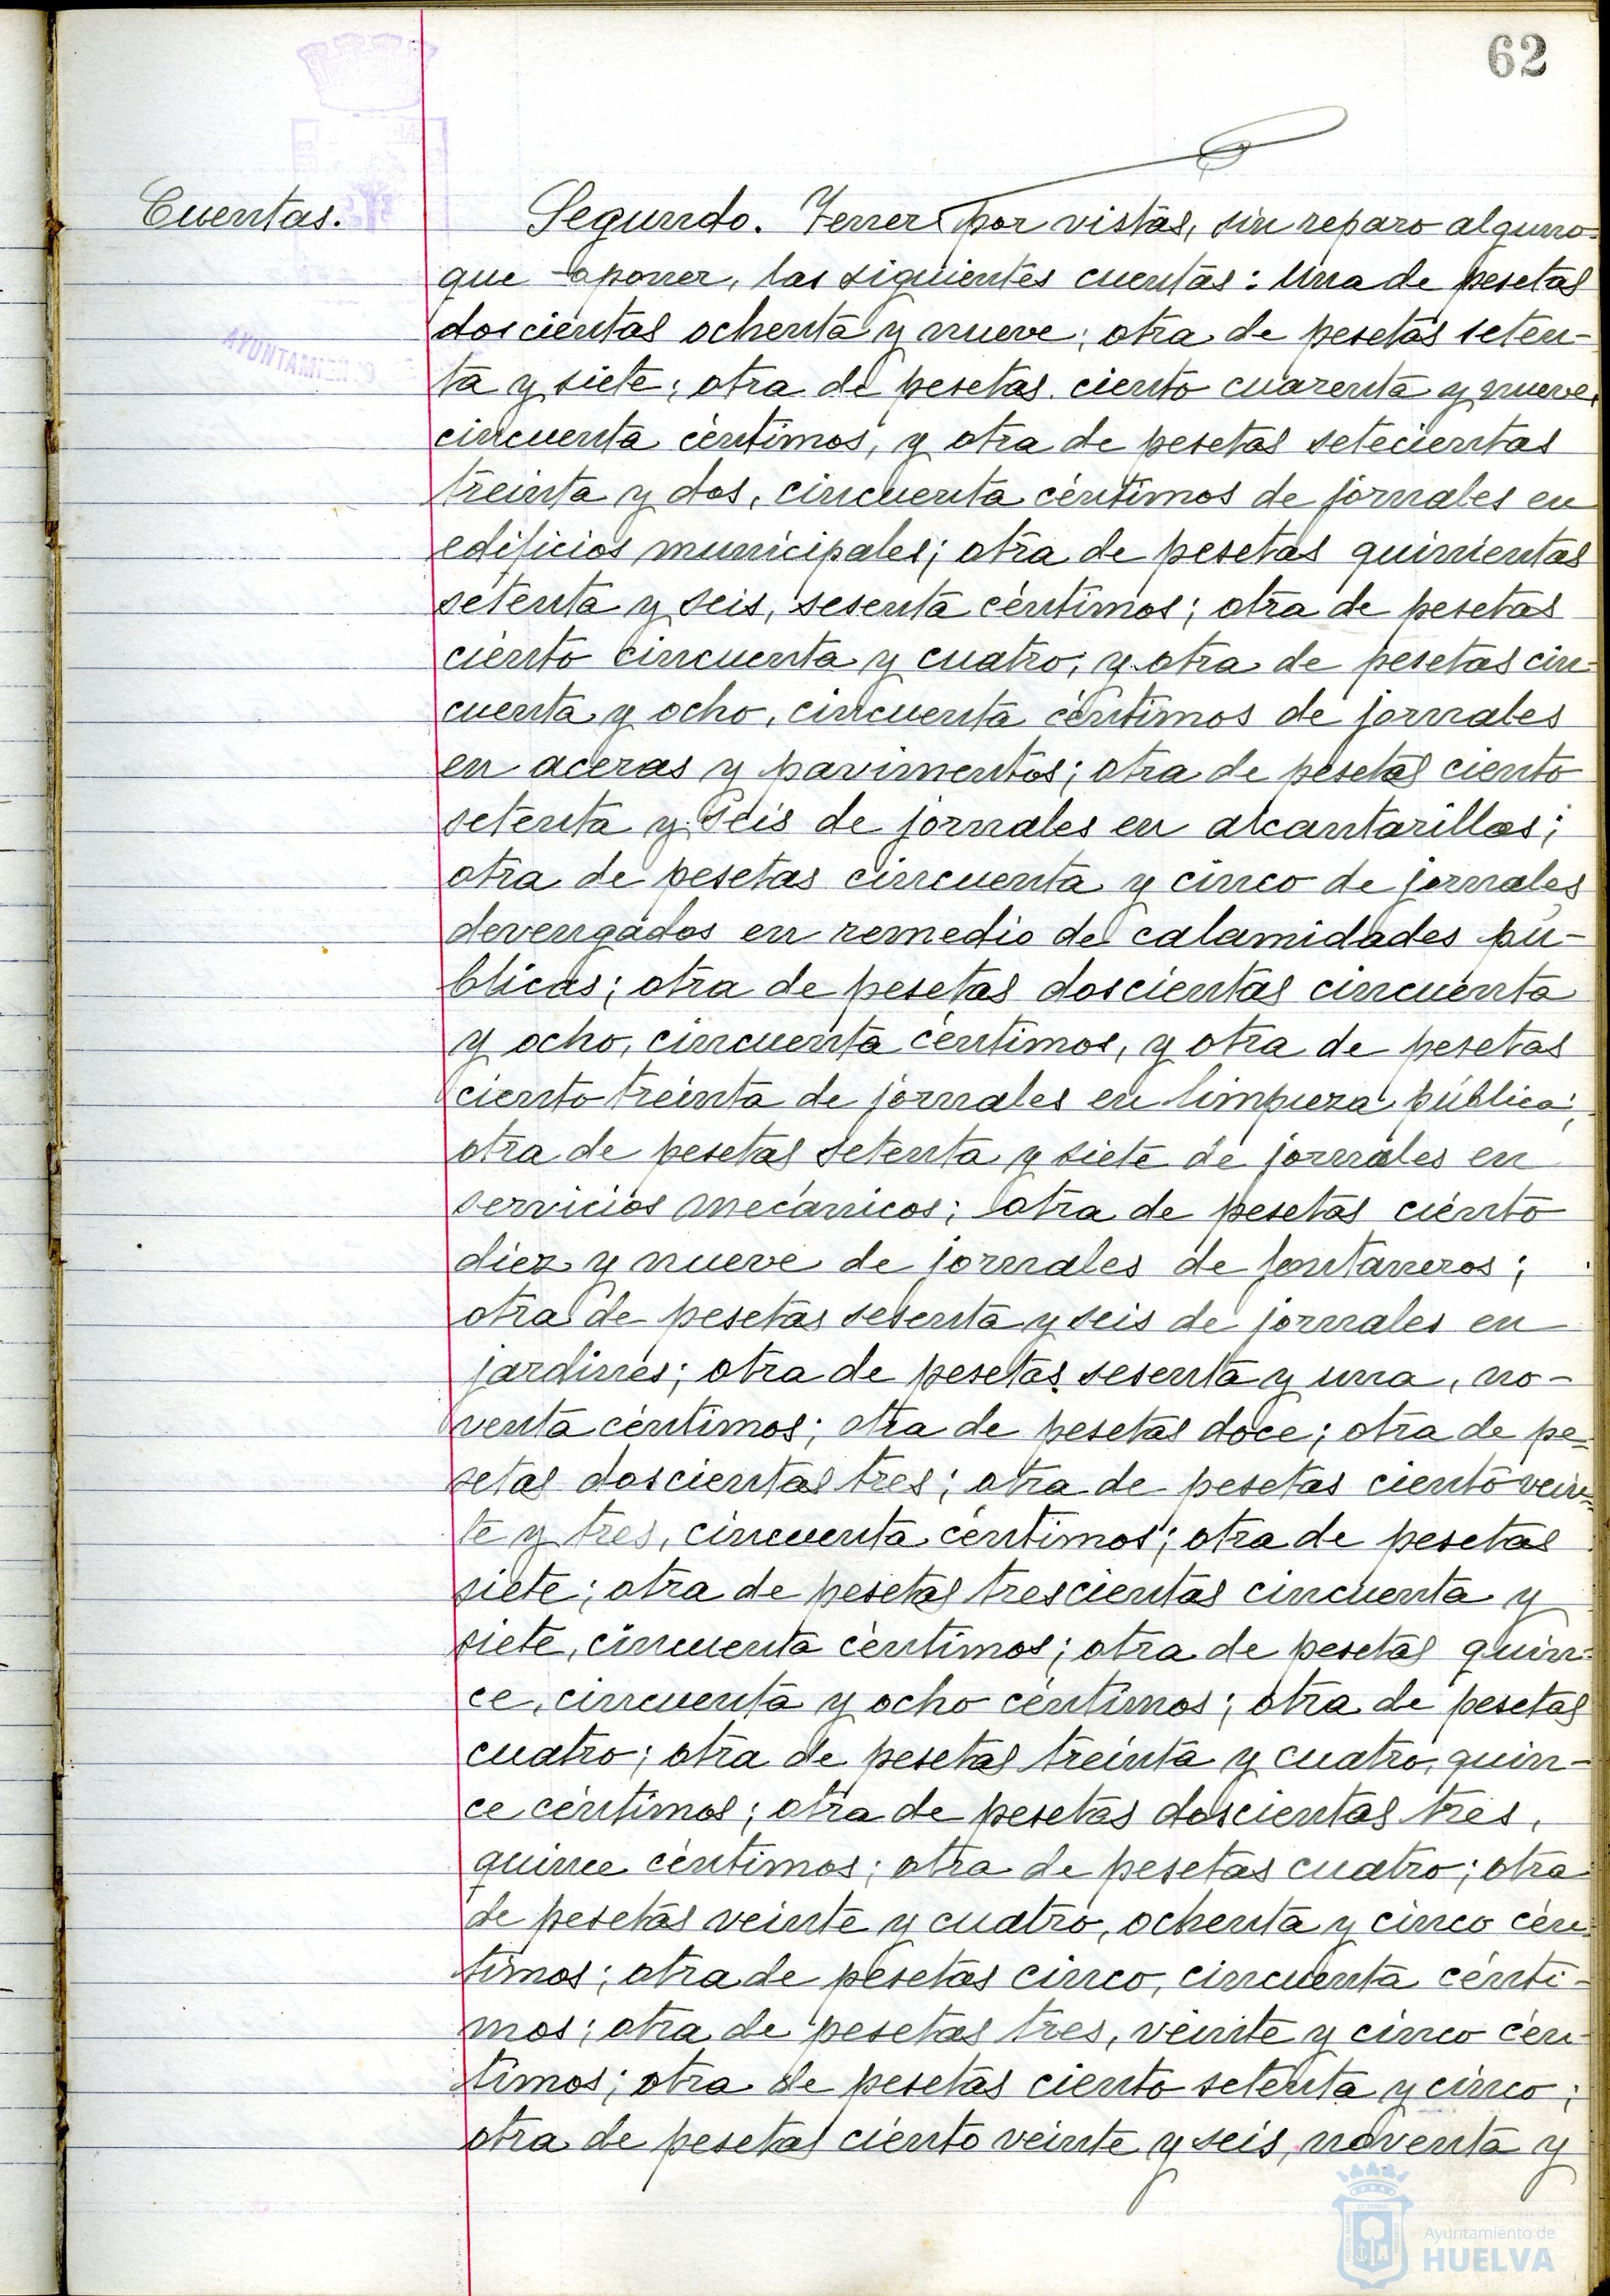 62
Cuentas.
Segundo. Tener por vistas, sin reparo alguno
que oponer, las siguientes cuentas: Una de pesetas
doscientas ochenta y nueve; otra de pesetas seten-
ta y siete; otra de pesetas ciento cuarenta y nueve,
cincuenta céntimos, y otra de pesetas setecientas
treinta y dos, cincuenta céntimos de jornales en
edificios municipales; otra de pesetas quinientas
setenta y seis, sesenta céntimos; otra de pesetas
ciento cincuenta y cuatro; y otra de pesetas cin-
cuenta y ocho, cincuenta céntimos de jornales
en aceras y pavimentos; otra de pesetas ciento
setenta y seis de jornales en alcantarillas;
otra de pesetas cincuenta y cinco de jornales
devengados en remedio de calamidades pú-
blicas; otra de pesetas doscientas cincuenta
y ocho, cincuenta céntimos, y otra de pesetas
ciento treinta de jornales en limpieza pública;
otra de pesetas setenta y siete de jornales en
servicios mecánicos; otra de pesetas ciento
diez y nueve de jornales de fontaneros;
otra de pesetas sesenta y seis de jornales en
jardines; otra de pesetas sesenta y una, no-
venta céntimos; otra de pesetas doce; otra de pe-
setas doscientas tres; otra de pesetas ciento vein-
te y tres, cincuenta céntimos; otra de pesetas
siete; otra de pesetas trescientas cincuenta y
siete, cincuenta céntimos; otra de pesetas quin-
ce, cincuenta y ocho céntimos; otra de pesetas
cuatro; otra de pesetas treinta y cuatro, quin-
ce céntimos; otra de pesetas doscientas tres,
quince céntimos; otra de pesetas cuatro; otra
de pesetas veinte y cuatro, ochenta y cinco cén-
timos; otra de pesetas cinco, cincuenta cénti-
mos; otra de pesetas tres, veinte y cinco cén-
timos; otra de pesetas ciento setenta y cinco;
otra de pesetas ciento veinte y seis, noventa y
AYUNTAMIENTO
Ayuntamiento de
HUELVA